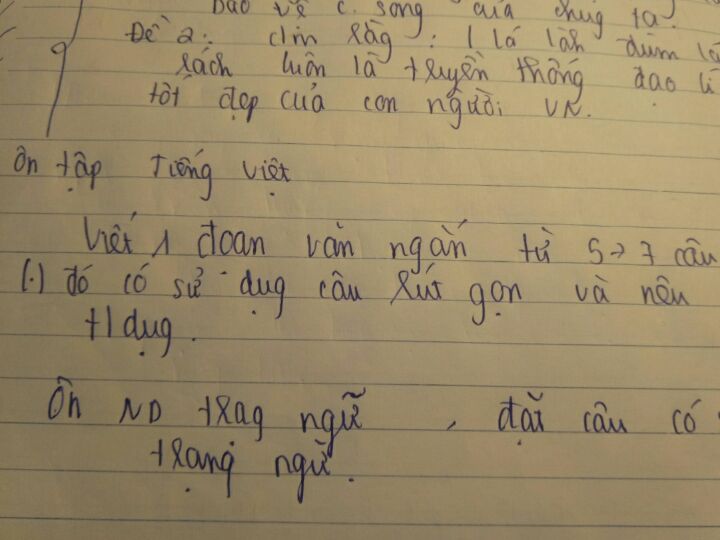 bảo vệ c. sống của chúng ta.
Đề 2: c/m rằg : 1 lá lành đùm lá
rách luôn là truyền thống đạo lí
tốt đẹp của con người VN.
Ôn tập Tiếng Việt
Viết 1 đoan văn ngắn từ 5 → 7 câu
(.) đó có sử dụg câu rút gọn và nêu
t/dụg.
Ôn ND trag ngữ , đặt câu có
trạng ngữ.